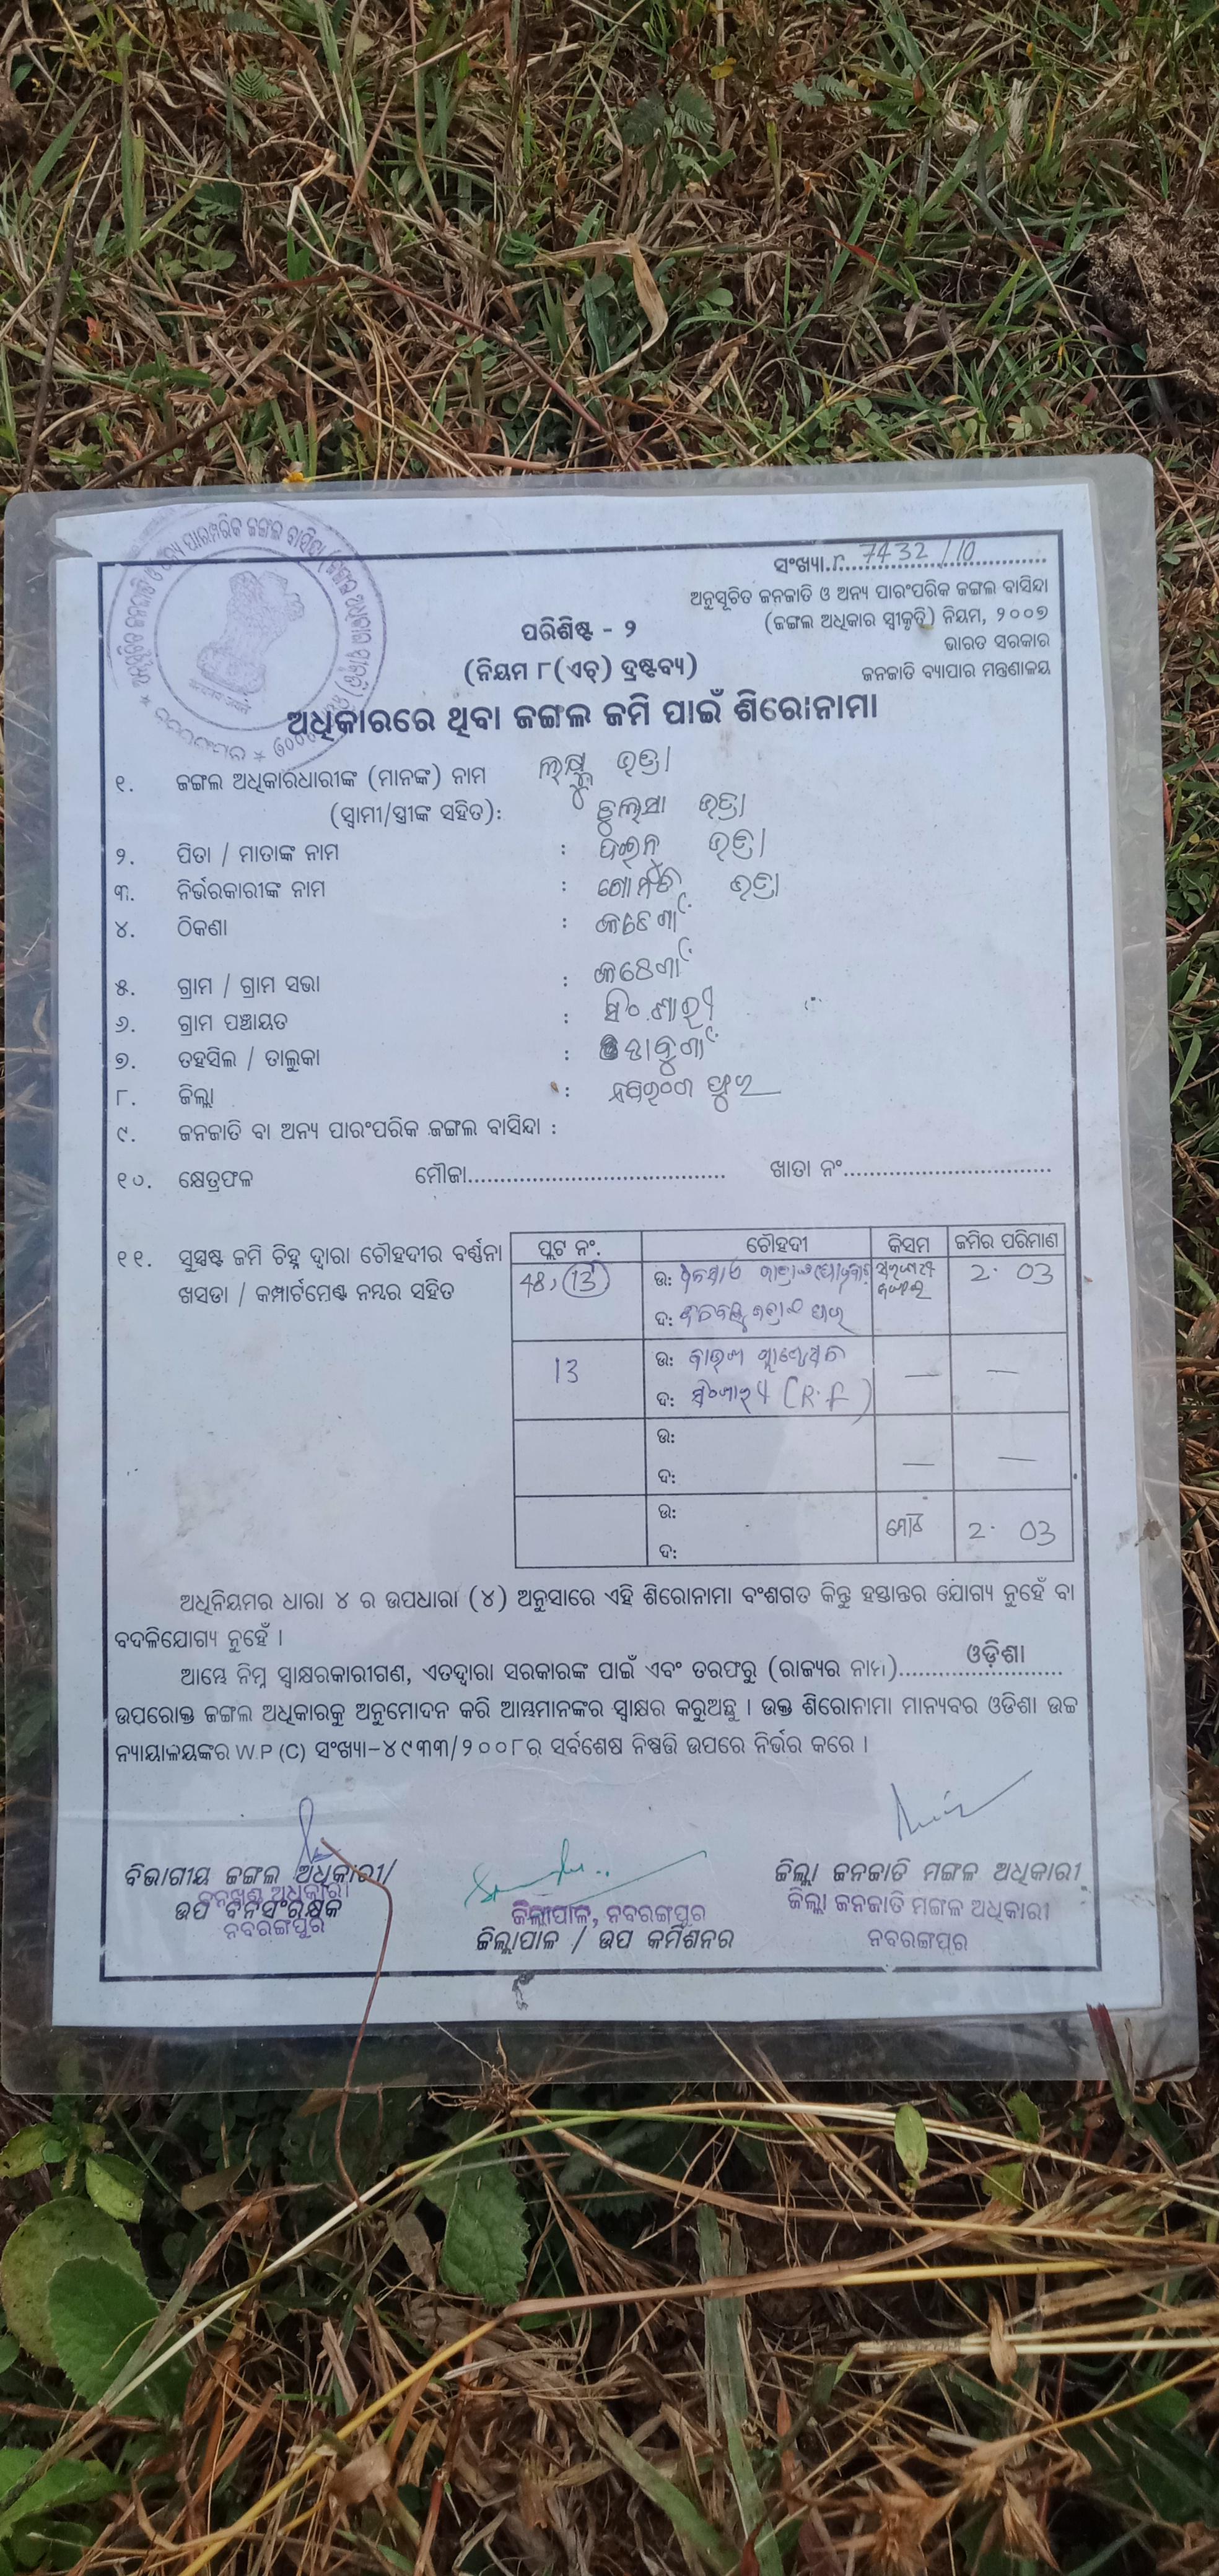 ସଂଖ୍ୟା.r. 7432/10
ଅନୁସୂଚିତ ଜନଜାତି ଓ ଅନ୍ୟ ପାରଂପରିକ ଜଙ୍ଗଲ ବାସିନ୍ଦା
(ଜଙ୍ଗଲ ଅଧିକାର ସ୍ୱୀକୃତି) ନିୟମ, ୨୦୦୭
ଭାରତ ସରକାର
ଜନଜାତି ବ୍ୟାପାର ମନ୍ତ୍ରଣାଳୟ
ପରିଶିଷ୍ଟ - ୨
(ନିୟମ ୮(ଏଚ୍) ଦ୍ରଷ୍ଟବ୍ୟ)
ଅଧିକାରରେ ଥିବା ଜଙ୍ଗଲ ଜମି ପାଇଁ ଶିରୋନାମା
୧. ଜଙ୍ଗଲ ଅଧିକାରଧାରୀଙ୍କ (ମାନଙ୍କ) ନାମ
(ସ୍ୱାମୀ/ସ୍ତ୍ରୀଙ୍କ ସହିତ): ତୁଳସା ଭତ୍ରା
୨. ପିତା / ମାତାଙ୍କ ନାମ : ଭତ୍ରା
୩. ନିର୍ଭରକାରୀଙ୍କ ନାମ : ଭତ୍ରା
୪. ଠିକଣା :
୫. ଗ୍ରାମ / ଗ୍ରାମ ସଭା :
୬. ଗ୍ରାମ ପଞ୍ଚାୟତ :
୭. ତହସିଲ / ତାଲୁକା : ଡାବୁଗାଁ
୮. ଜିଲ୍ଲା : ନବରଂଗପୁର
୯. ଜନଜାତି ବା ଅନ୍ୟ ପାରଂପରିକ ଜଙ୍ଗଲ ବାସିନ୍ଦା :
୧୦. କ୍ଷେତ୍ରଫଳ ମୌଜା........ ଖାତା ନଂ........
୧୧. ସୁସ୍ପଷ୍ଟ ଜମି ଚିହ୍ନ ଦ୍ୱାରା ଚୌହଦୀର ବର୍ଣ୍ଣନା
ଖସଡା / କମ୍ପାର୍ଟମେଣ୍ଟ ନମ୍ବର ସହିତ
ପ୍ଲଟ ନଂ. ଚୌହଦୀ କିସମ ଜମିର ପରିମାଣ
48, 13 ଉ: 2. 03
ଦ:
13 ଉ:
ଦ: (R.F)
ଉ:
ଦ:
ଉ: ମୋଟ 2. 03
ଦ:
ଅଧିନିୟମର ଧାରା ୪ ର ଉପଧାରା (୪) ଅନୁସାରେ ଏହି ଶିରୋନାମା ବଂଶଗତ କିନ୍ତୁ ହସ୍ତାନ୍ତର ଯୋଗ୍ୟ ନୁହେଁ ବା
ବଦଳିଯୋଗ୍ୟ ନୁହେଁ ।
ଆମ୍ଭେ ନିମ୍ନ ସ୍ୱାକ୍ଷରକାରୀଗଣ, ଏତଦ୍ୱାରା ସରକାରଙ୍କ ପାଇଁ ଏବଂ ତରଫରୁ (ରାଜ୍ୟର ନାମ)....ଓଡ଼ିଶା....
ଉପରୋକ୍ତ ଜଙ୍ଗଲ ଅଧିକାରକୁ ଅନୁମୋଦନ କରି ଆମ୍ଭମାନଙ୍କର ସ୍ୱାକ୍ଷର କରୁଅଛୁ । ଉକ୍ତ ଶିରୋନାମା ମାନ୍ୟବର ଓଡିଶା ଉଚ୍ଚ
ନ୍ୟାୟାଳୟଙ୍କର W.P (C) ସଂଖ୍ୟା-୪୯୩୩/୨୦୦୮ର ସର୍ବଶେଷ ନିଷ୍ପତ୍ତି ଉପରେ ନିର୍ଭର କରେ ।
ବିଭାଗୀୟ ଜଙ୍ଗଲ ଅଧିକାରୀ/
ବନଖଣ୍ଡ ଅଧିକାରୀ
ଉପ ବନସଂରକ୍ଷକ
ନବରଙ୍ଗପୁର
ଜିଲ୍ଲାପାଳ, ନବରଙ୍ଗପୁର
ଜିଲ୍ଲାପାଳ / ଉପ କମିଶନର
ଜିଲ୍ଲା ଜନଜାତି ମଙ୍ଗଳ ଅଧିକାରୀ
ଜିଲ୍ଲା ଜନଜାତି ମଙ୍ଗଳ ଅଧିକାରୀ
ନବରଙ୍ଗପୁର